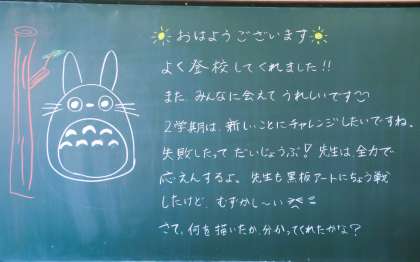 おはようございます
よく登校してくれました!!
また、みんなに会えてうれしいです
2学期は、新しいことにチャレンジしたいですね。
失敗したってだいじょうぶ!先生は全力で
応えんするよ。先生も黒板アートにちょう戦
したけど、むずかし〜い
さて、何を描いたか、分かってくれたかな?